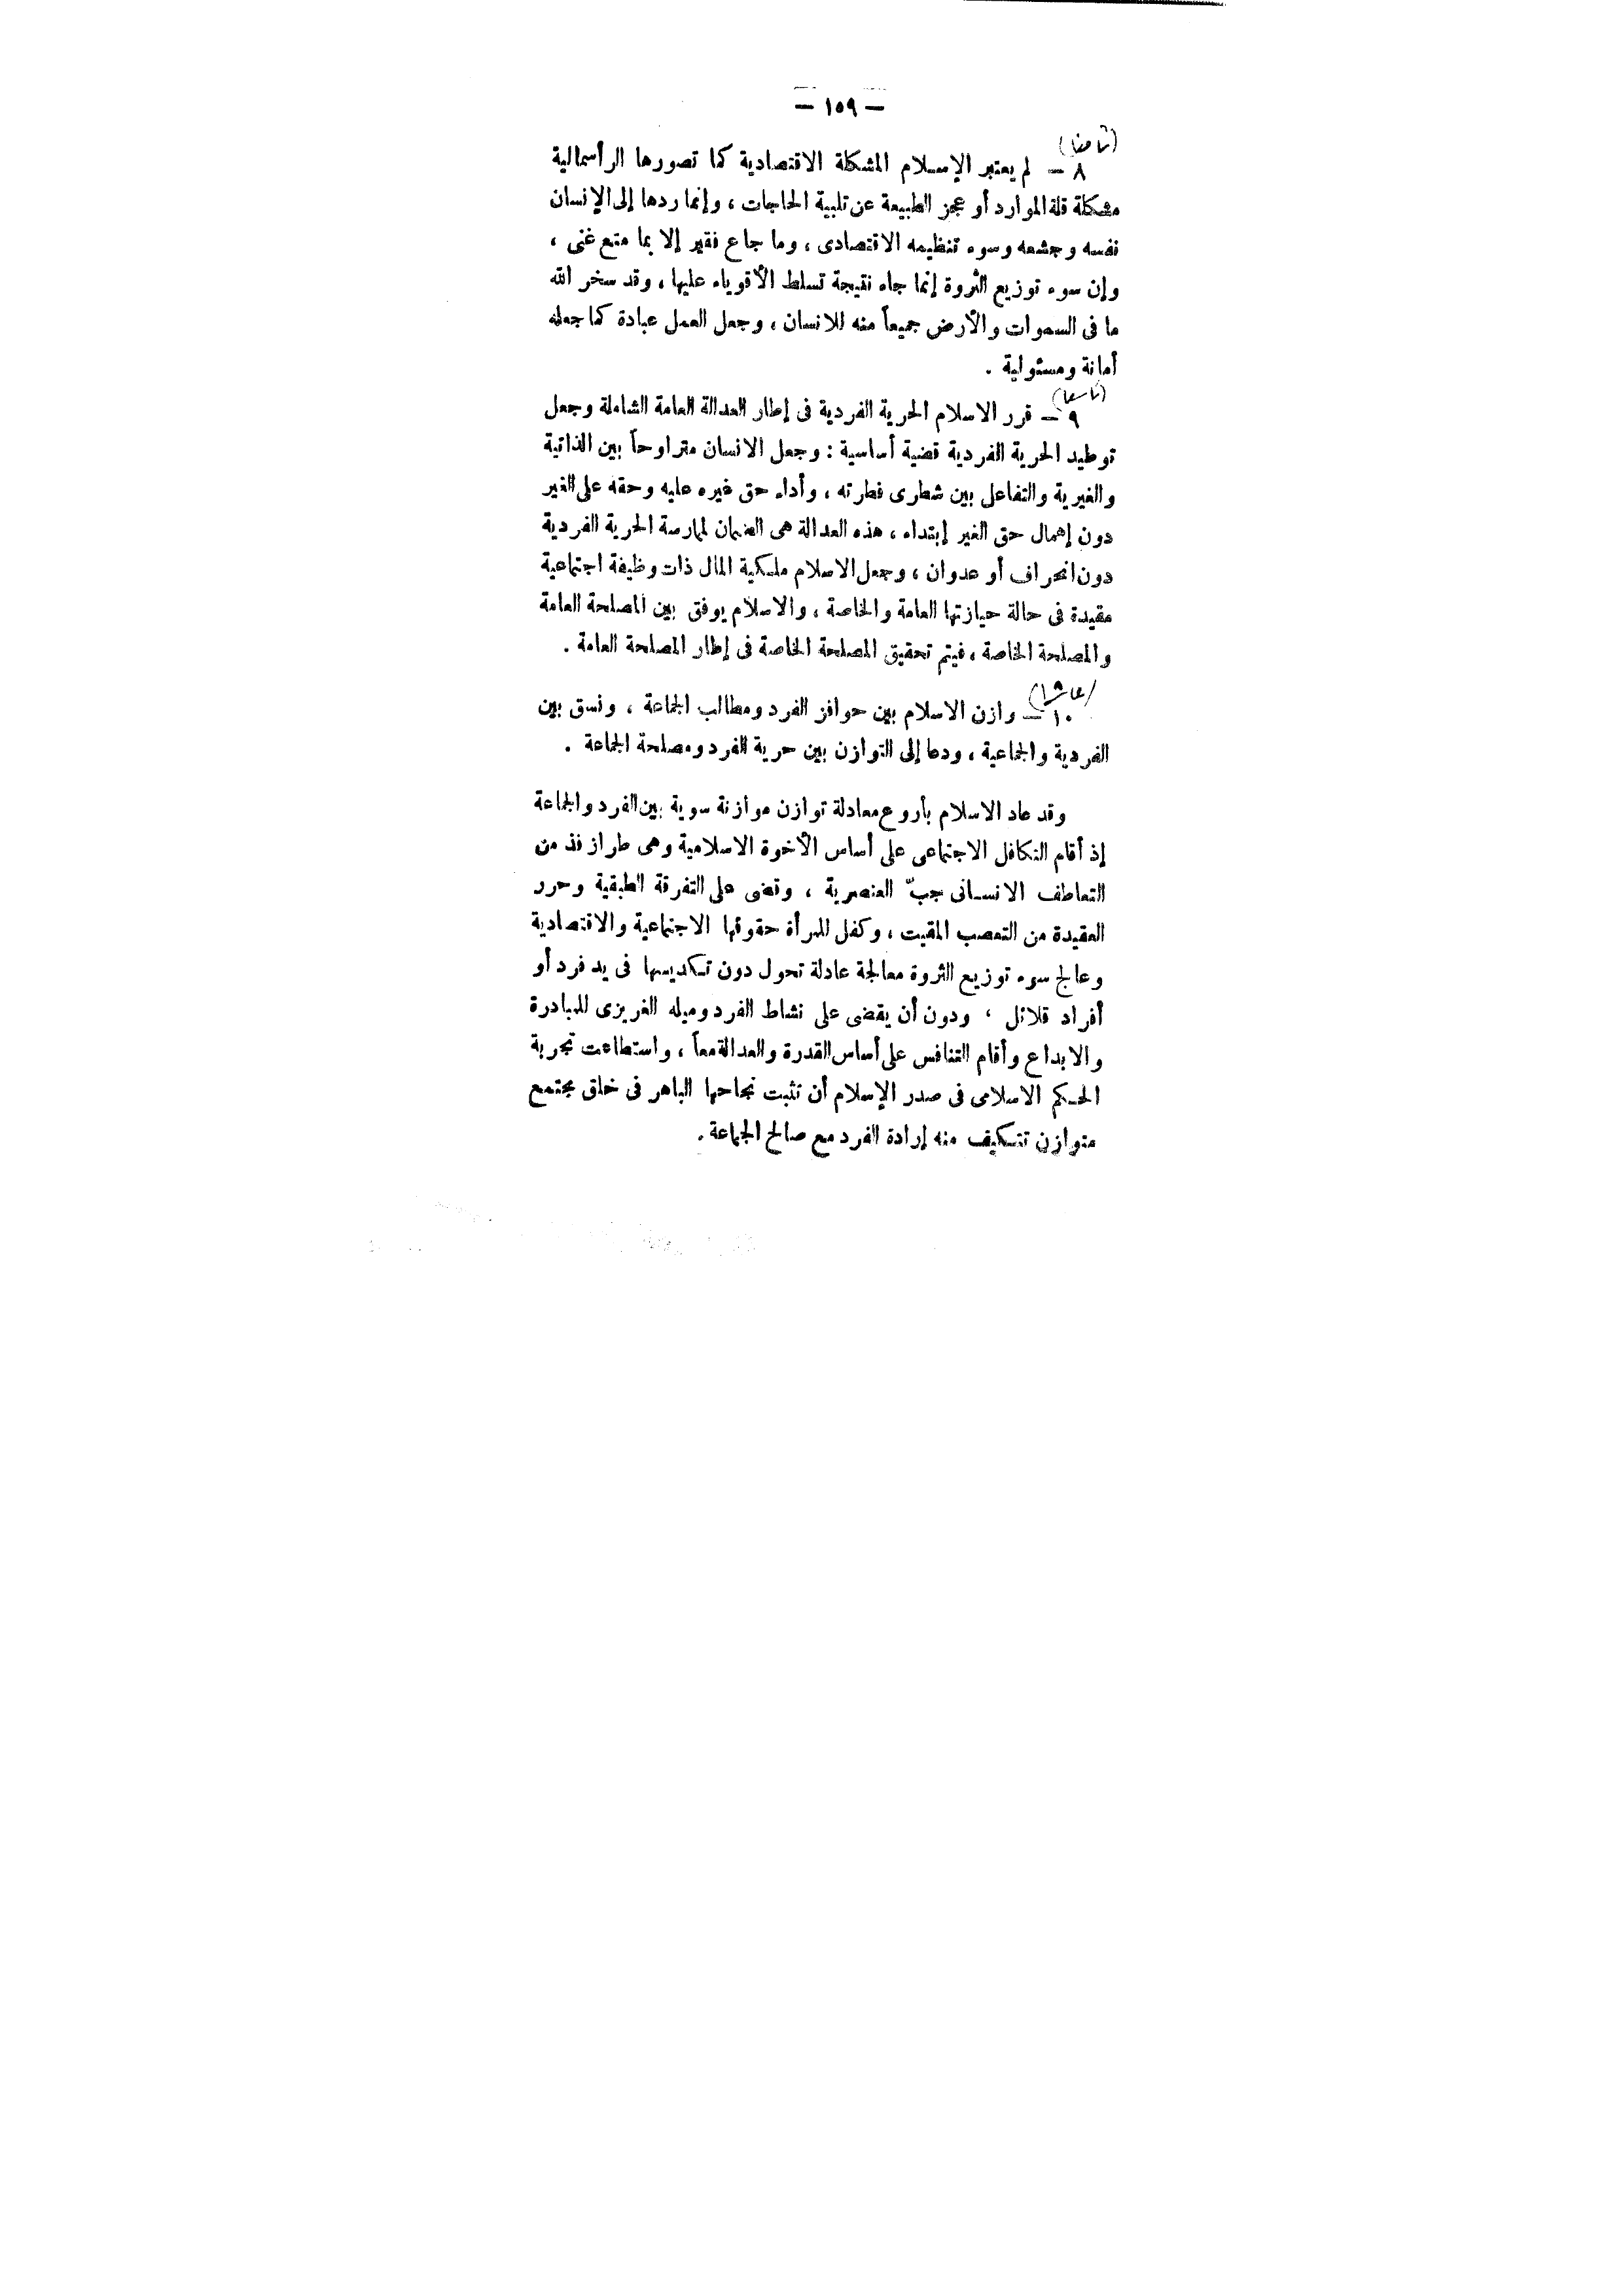 — ١٥٩ —
(ثامنا)
٨ — لم يعتبر الإسلام المشكلة الاقتصادية كما تصورها الرأسمالية
مشكلة قلة الموارد أو عجز الطبيعة عن تلبية الحاجات ، وإنما ردها إلى الإنسان
نفسه وجشعه وسوء تنظيمه الاقتصادى ، وما جاع فقير إلا بما متع غنى ،
وإن سوء توزيع الثروة إنما جاء نتيجة تسلط الأقوياء عليها ، وقد سخر الله
ما فى السموات والأرض جميعاً منه للانسان ، وجعل العمل عبادة كما جعله
أمانة ومسئولية .
(تاسعا)
٩ — قرر الاسلام الحرية الفردية فى إطار العدالة العامة الشاملة وجعل
توطيد الحرية الفردية قضية أساسية : وجعل الانسان متراوحاً بين الذاتية
والغيرية والتفاعل بين شطرى فطرته ، وأداء حق غيره عليه وحقه على الغير
دون إهمال حق الغير إبتداء ، هذه العدالة هى الضمان لممارسة الحرية الفردية
دون انحراف أو عدوان ، وجعل الاسلام ملكية المال ذات وظيفة اجتماعية
مقيدة فى حالة حيازتها العامة والخاصة ، والاسلام يوفق بين المصلحة العامة
والمصلحة الخاصة ، فيتم تحقيق المصلحة الخاصة فى إطار المصلحة العامة .
(عاشرا)
١٠ — وازن الاسلام بين حوافز الفرد ومطالب الجماعة ، ونسق بين
الفردية والجماعية ، ودعا إلى التوازن بين حرية الفرد ومصلحة الجماعة .
وقد عاد الاسلام بأروع معادلة توازن موازنة سوية بين الفرد والجماعة
إذ أقام التكافل الاجتماعى على أساس الأخوة الاسلامية وهى طراز فذ من
التعاطف الانسانى جبّ العنصرية ، وقضى على التفرقة الطبقية وحرر
العقيدة من التعصب المقيت ، وكفل للمرأة حقوقها الاجتماعية والاقتصادية
وعالج سوء توزيع الثروة معالجة عادلة تحول دون تكديسها فى يد فرد أو
أفراد قلائل ، ودون أن يقضى على نشاط الفرد وميله الغريزى للمبادرة
والابداع وأقام التنافس على أساس القدرة والعدالة معاً ، واستطاعت تجربة
الحكم الاسلامى فى صدر الإسلام أن تثبت نجاحها الباهر فى خلق مجتمع
متوازن تتكيف منه إرادة الفرد مع صالح الجماعة .